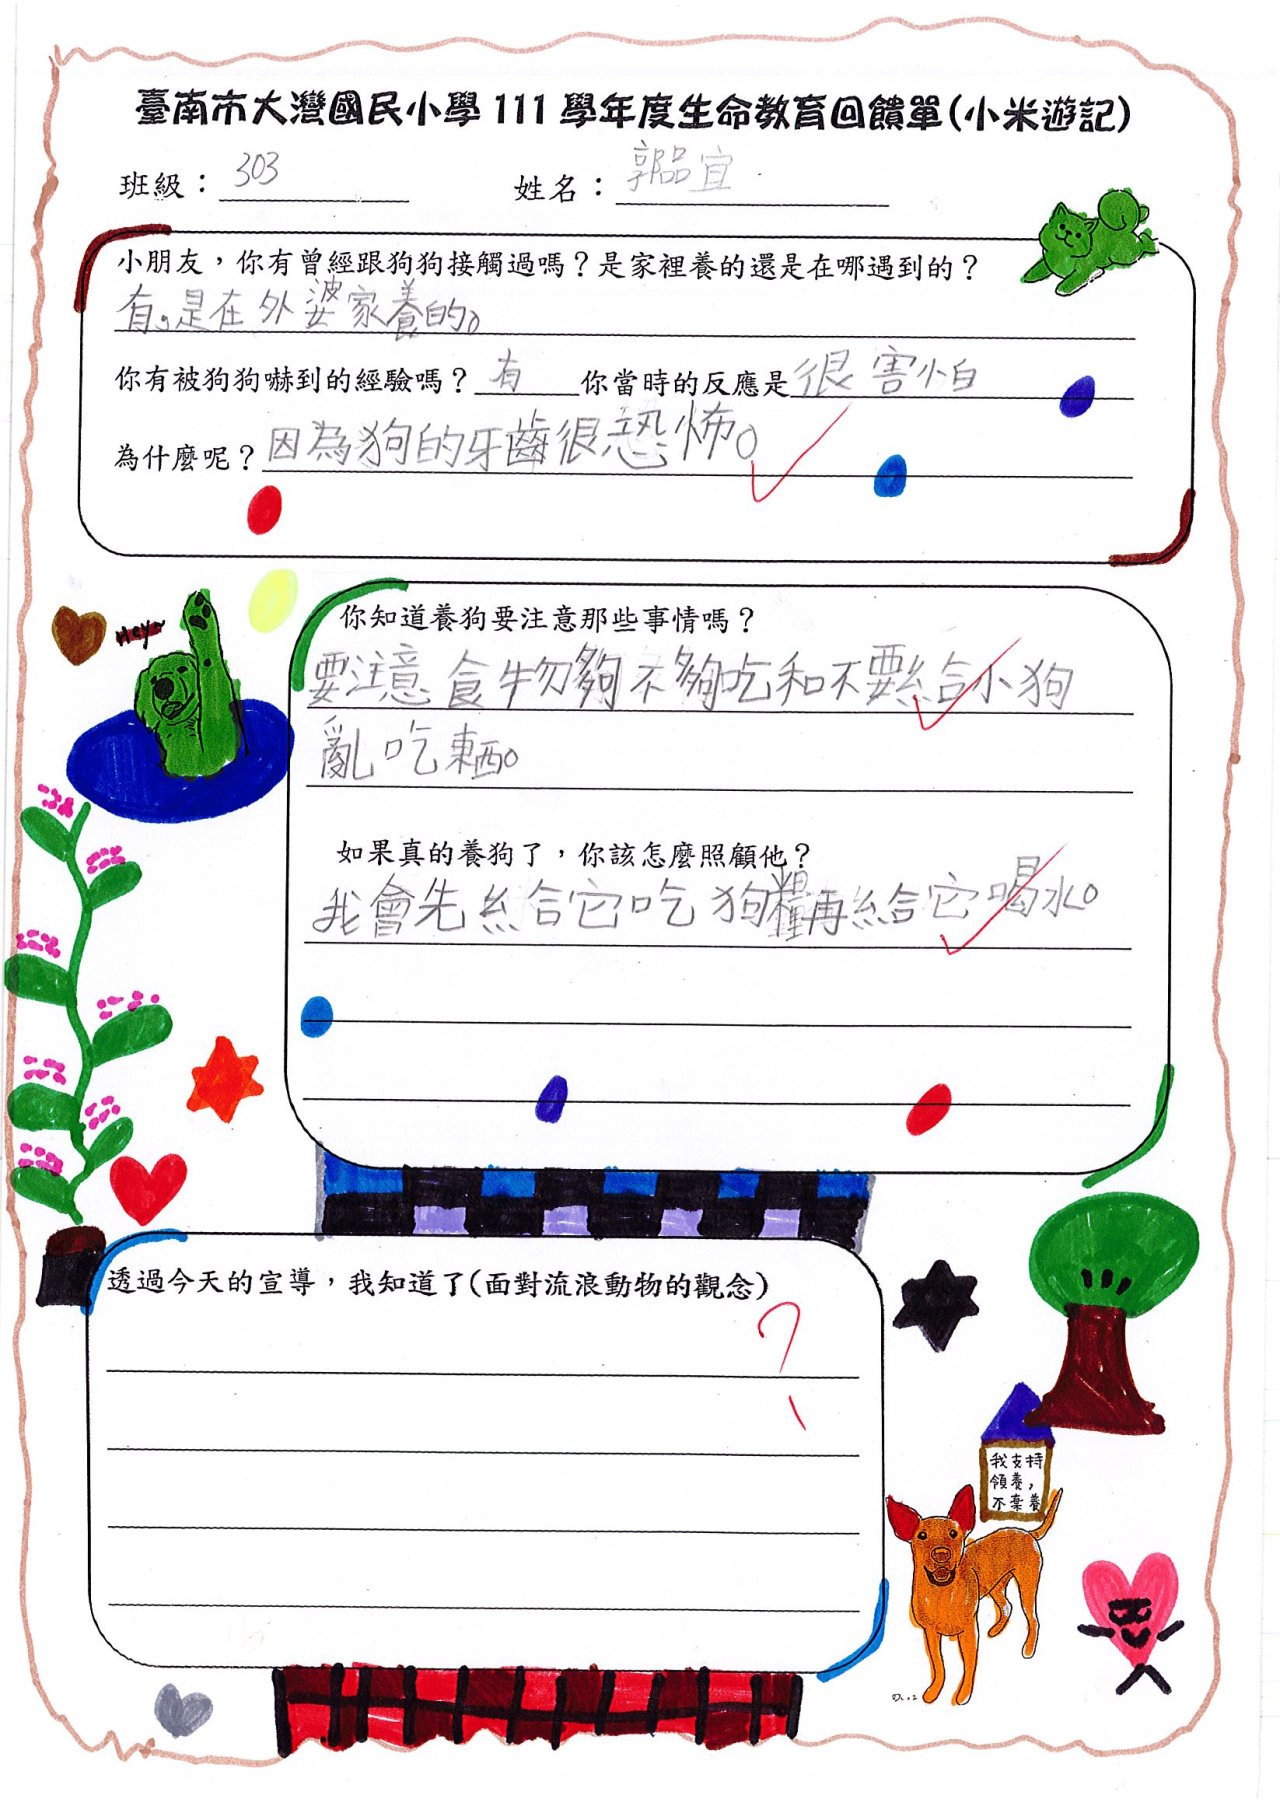 臺南市大灣國民小學 111 學年度生命教育回饋單(小米遊記)
班級：303 姓名：郭品宜
小朋友，你有曾經跟狗狗接觸過嗎？是家裡養的還是在哪遇到的？
有。是在外婆家養的。
你有被狗狗嚇到的經驗嗎？有 你當時的反應是很害怕
為什麼呢？因為狗的牙齒很恐怖。
你知道養狗要注意那些事情嗎？
Hey~
要注意食物夠不夠吃和不要給小狗
亂吃東西。
如果真的養狗了，你該怎麼照顧他？
我會先給它吃狗糧再給它喝水。
透過今天的宣導，我知道了(面對流浪動物的觀念)
?
我支持
領養，
不棄養